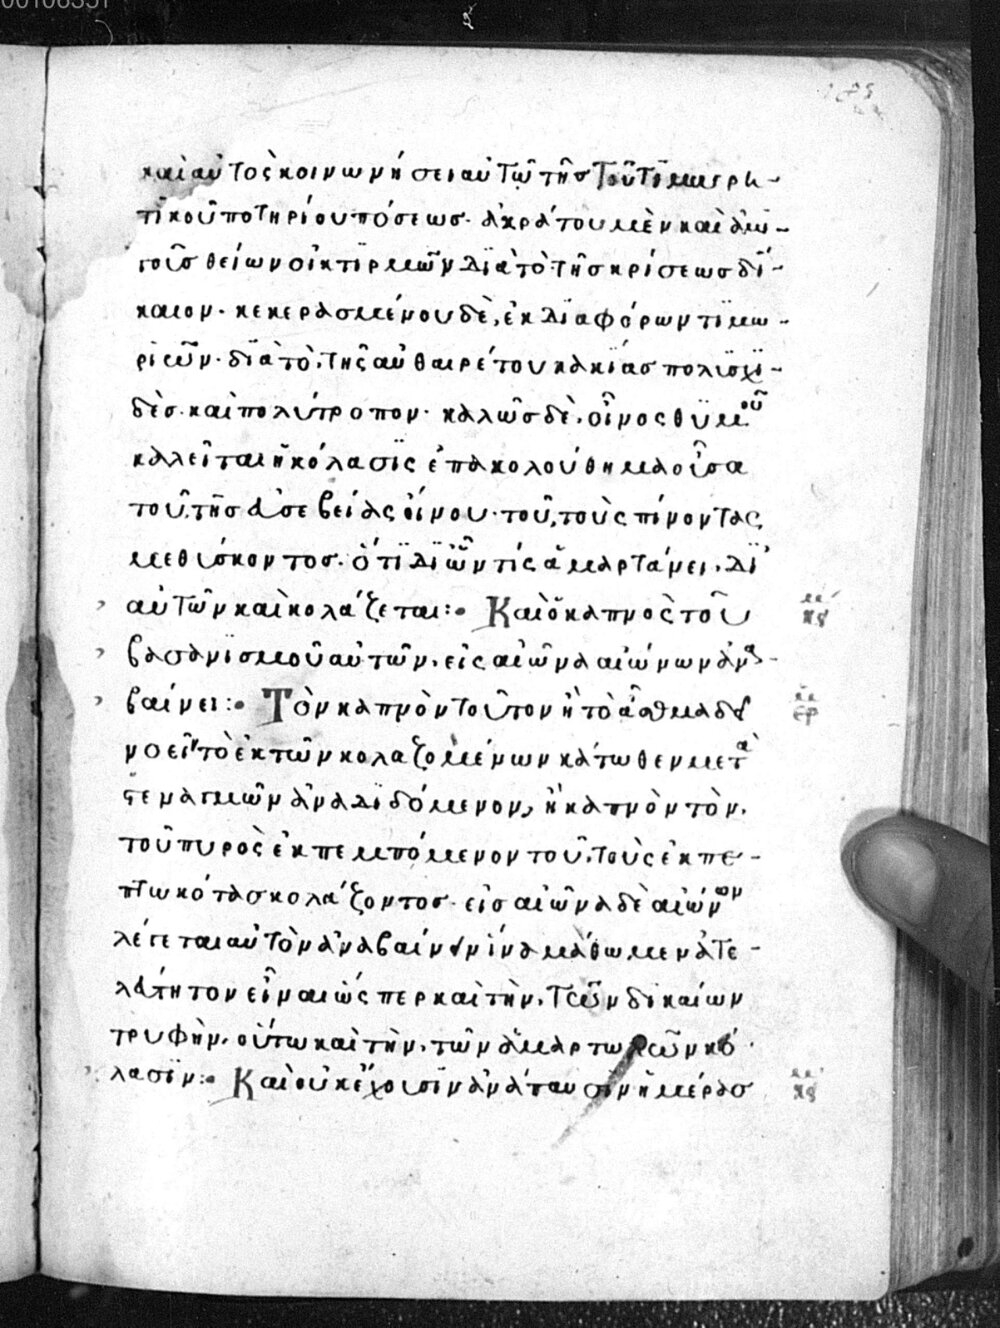 καὶ αὐτὸς κοινωνήσει αὐτῷ τῆς τοῦ τιμωρη-
τικοῦ ποτηρίου πόσεως· ἀκράτου μὲν καὶ ἀμι-
γοῦς θείων οἰκτιρμῶν διὰ τὸ τῆς κρίσεως δί-
καιον· κεκερασμένου δὲ, ἐκ διαφόρων τιμω-
ριῶν· διὰ τὸ, τῆς αὐθαιρέτου κακίας πολισχι-
δὲς καὶ πολύτροπον· καλῶς δὲ, οἶνος θυμοῦ
καλεῖται ἡ κόλασις ἐπακολούθημα οὖσα
τοῦ, τῆς ἀσεβείας οἴνου· τοῦ, τοὺς πίνοντας
μεθύσκοντος· ὅτι δι ὧν τίς ἁμαρτάνει, δι
αὐτῶν καὶ κολάζεται:• Καὶ ὁ καπνὸς τοῦ
κει
βασανισμοῦ αὐτῶν, εἰς αἰῶνα αἰώνων ἀνα-
βαίνει:• Τὸν καπνὸν τοῦτον ἢ τὸ ἆσθμα δεῖ
ερ
νοεῖν τὸ ἐκ τῶν κολαζομένων κάτωθεν μετὰ
στεναγμῶν ἀναδιδόμενον, ἢ καπνὸν τὸν,
τοῦ πυρὸς ἐκπεμπόμενον τοῦ, τοὺς ἐκπε-
πτωκότας κολάζοντος· εἰς αἰῶνα δὲ αἰώνων
λέγεται αὐτὸν ἀναβαίνειν ἵνα μάθωμεν ἀτε-
λεύτητον εἶναι ὥσπερ καὶ τὴν, τῶν δικαίων
τρυφὴν, οὕτω καὶ τὴν, τῶν ἁμαρτωλῶν κό
λασιν:• Καὶ οὐκ ἔχουσιν ἀνάπαυσιν ἡμέρας
κει